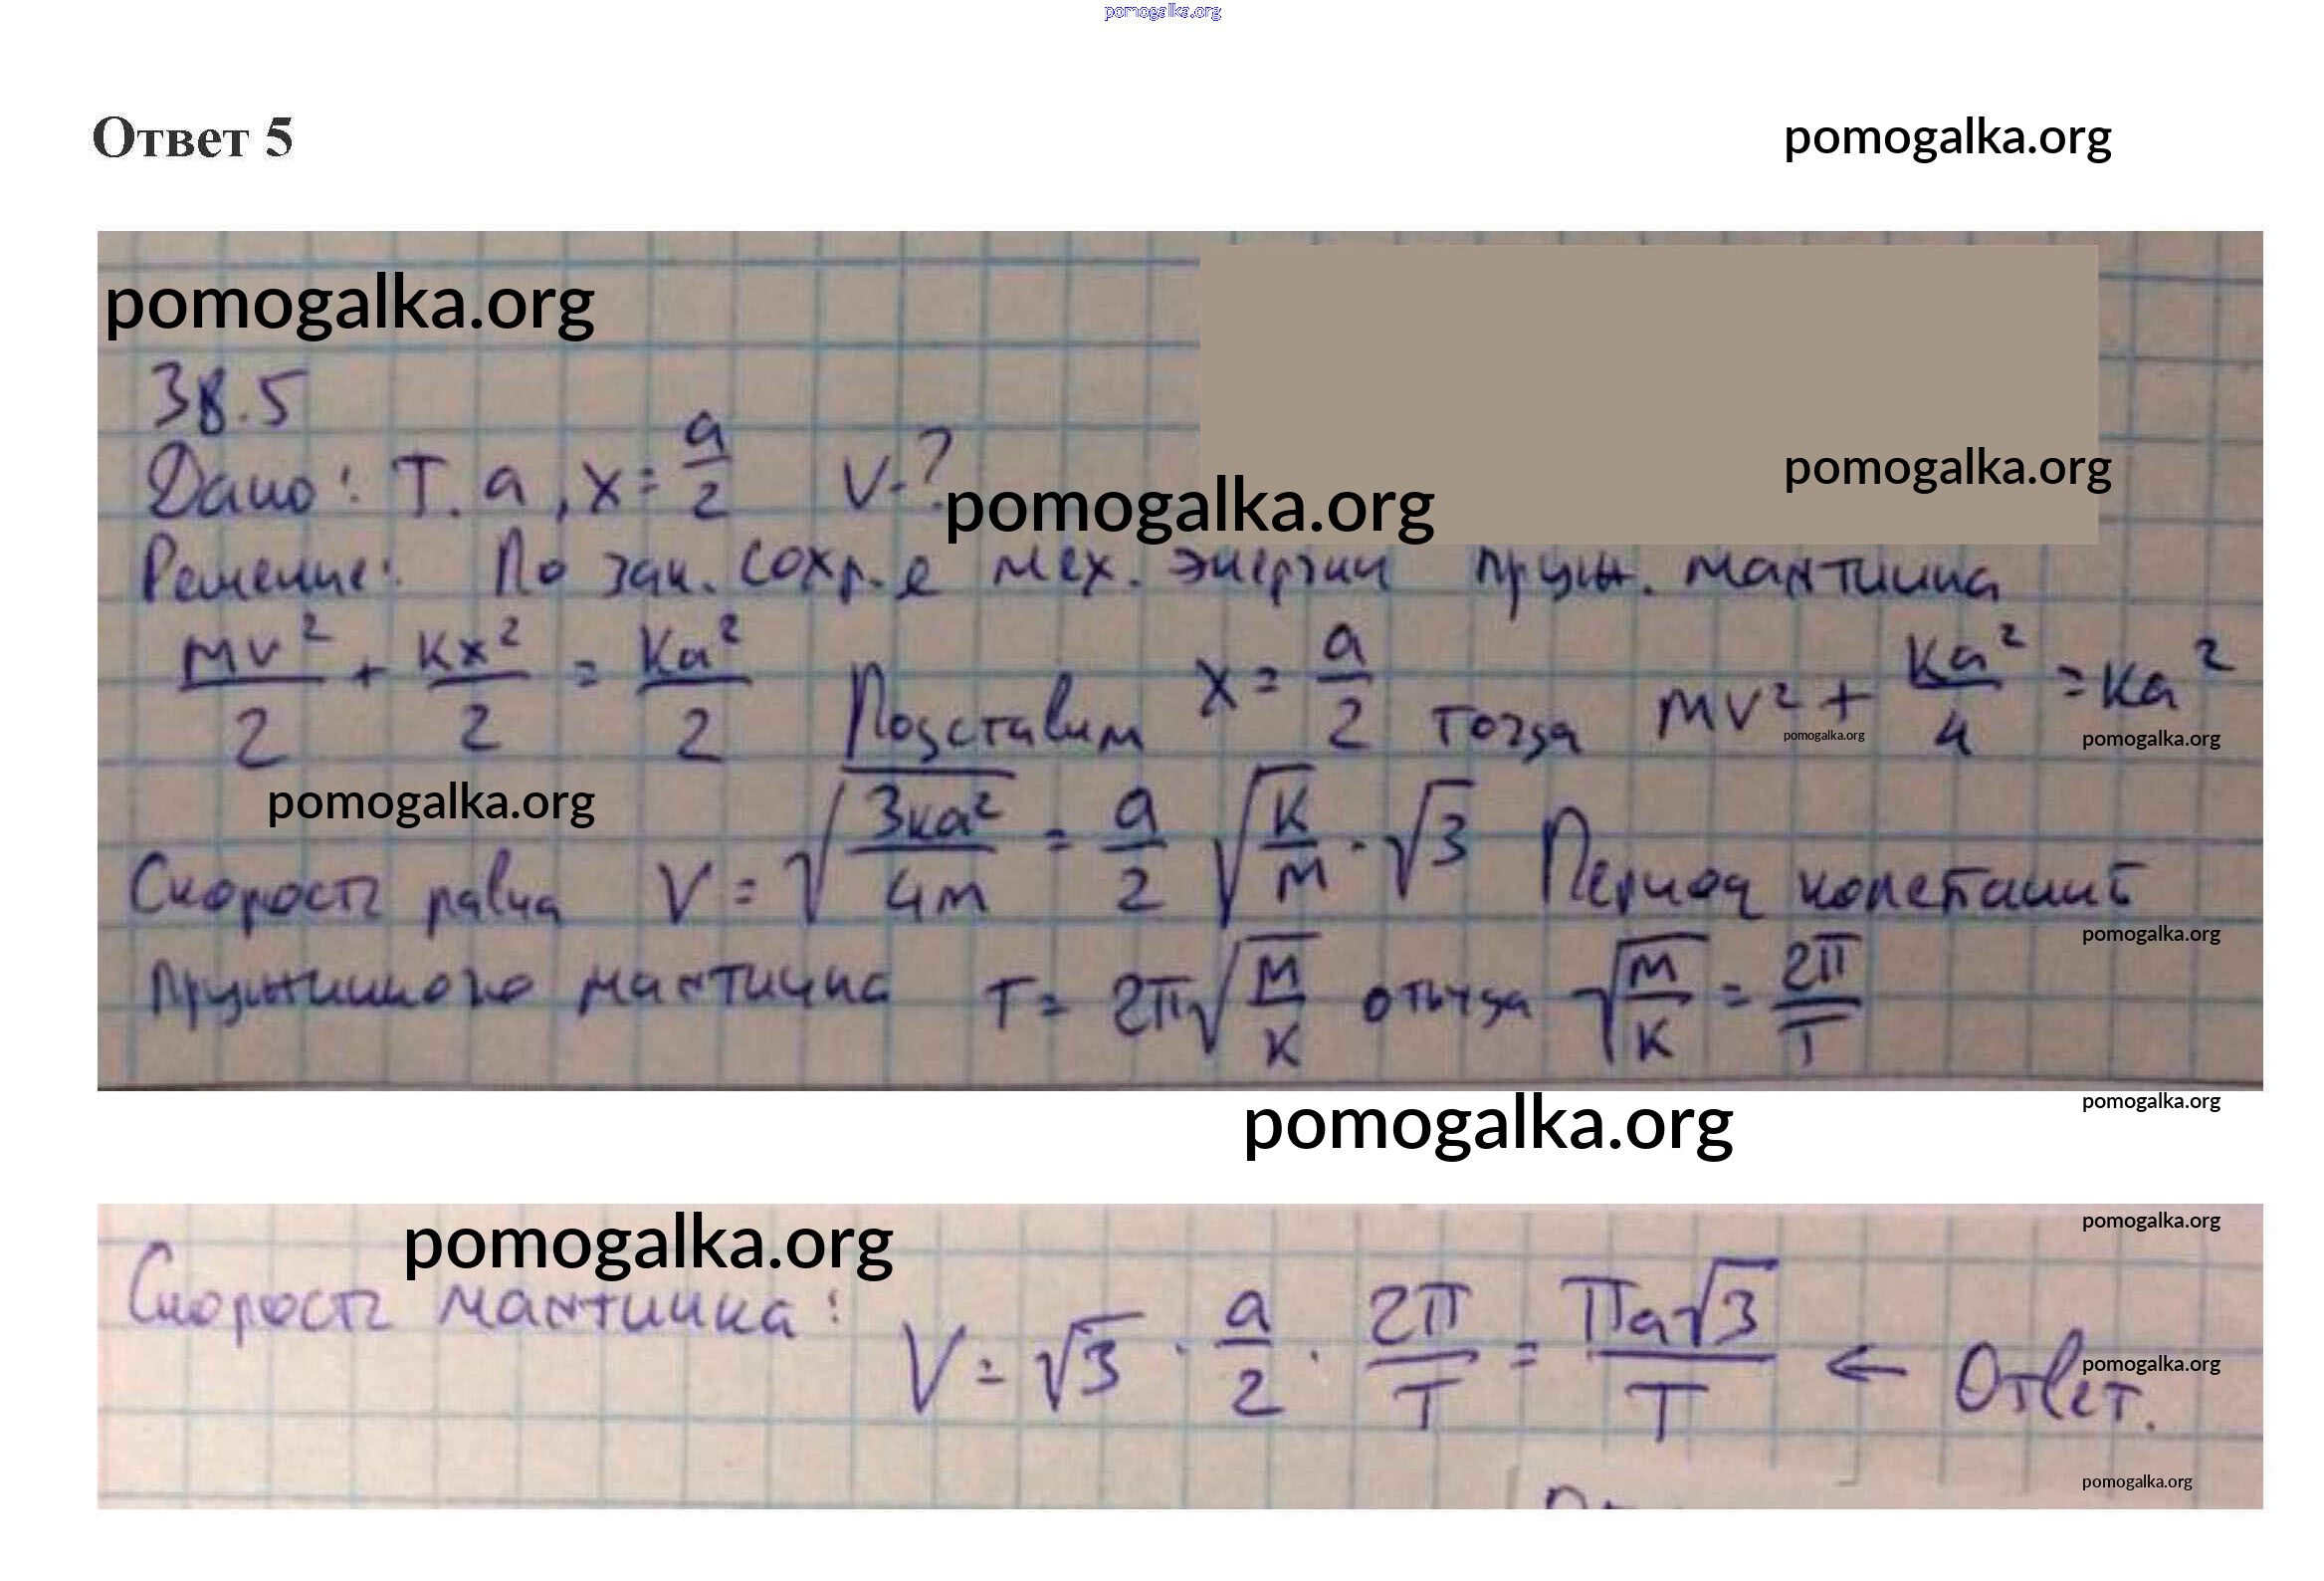 pomogalka.org
Ответ 5 pomogalka.org
pomogalka.org
38.5
Дано: T. a, x = a/2 V-?
pomogalka.org
pomogalka.org
Решение: По зак. сохр-е мех. энергии пруж. маятника
mv²/2 + kx²/2 = ka²/2 Подставим x = a/2 тогда mv² + ka²/4 = ka²
pomogalka.org pomogalka.org
pomogalka.org
Скорость равна V = √(3ka²/4m) = a/2 √(k/m) · √3 Период колебаний
pomogalka.org
пружинного маятника T = 2π√(m/k) откуда √(m/k) = 2π/T
pomogalka.org
pomogalka.org
pomogalka.org
pomogalka.org
Скорость маятника: V = √3 · a/2 · 2π/T = πa√3/T ← Ответ.
pomogalka.org
pomogalka.org